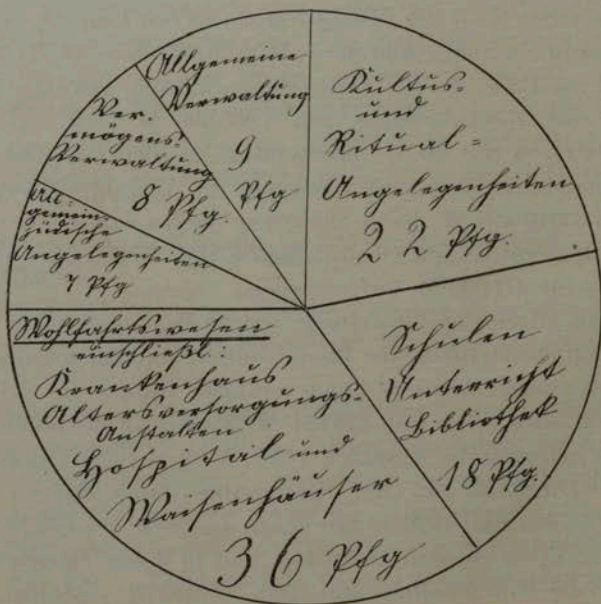 Kultus-
und
Ritual=
Angelegenheiten
22 Pfg.
Schulen
Unterricht
Bibliothek
18 Pfg.
Wohlfahrtswesen
einschließl.:
Krankenhaus
Altersversorgungs-
Anstalten
Hospital und
Waisenhäuser
36 Pfg
All-
gemein-
jüdische
Angelegenheiten
7 Pfg
Ver-
mögens-
Verwaltung
8 Pfg.
Allgemeine
Verwaltung
9
Pfg